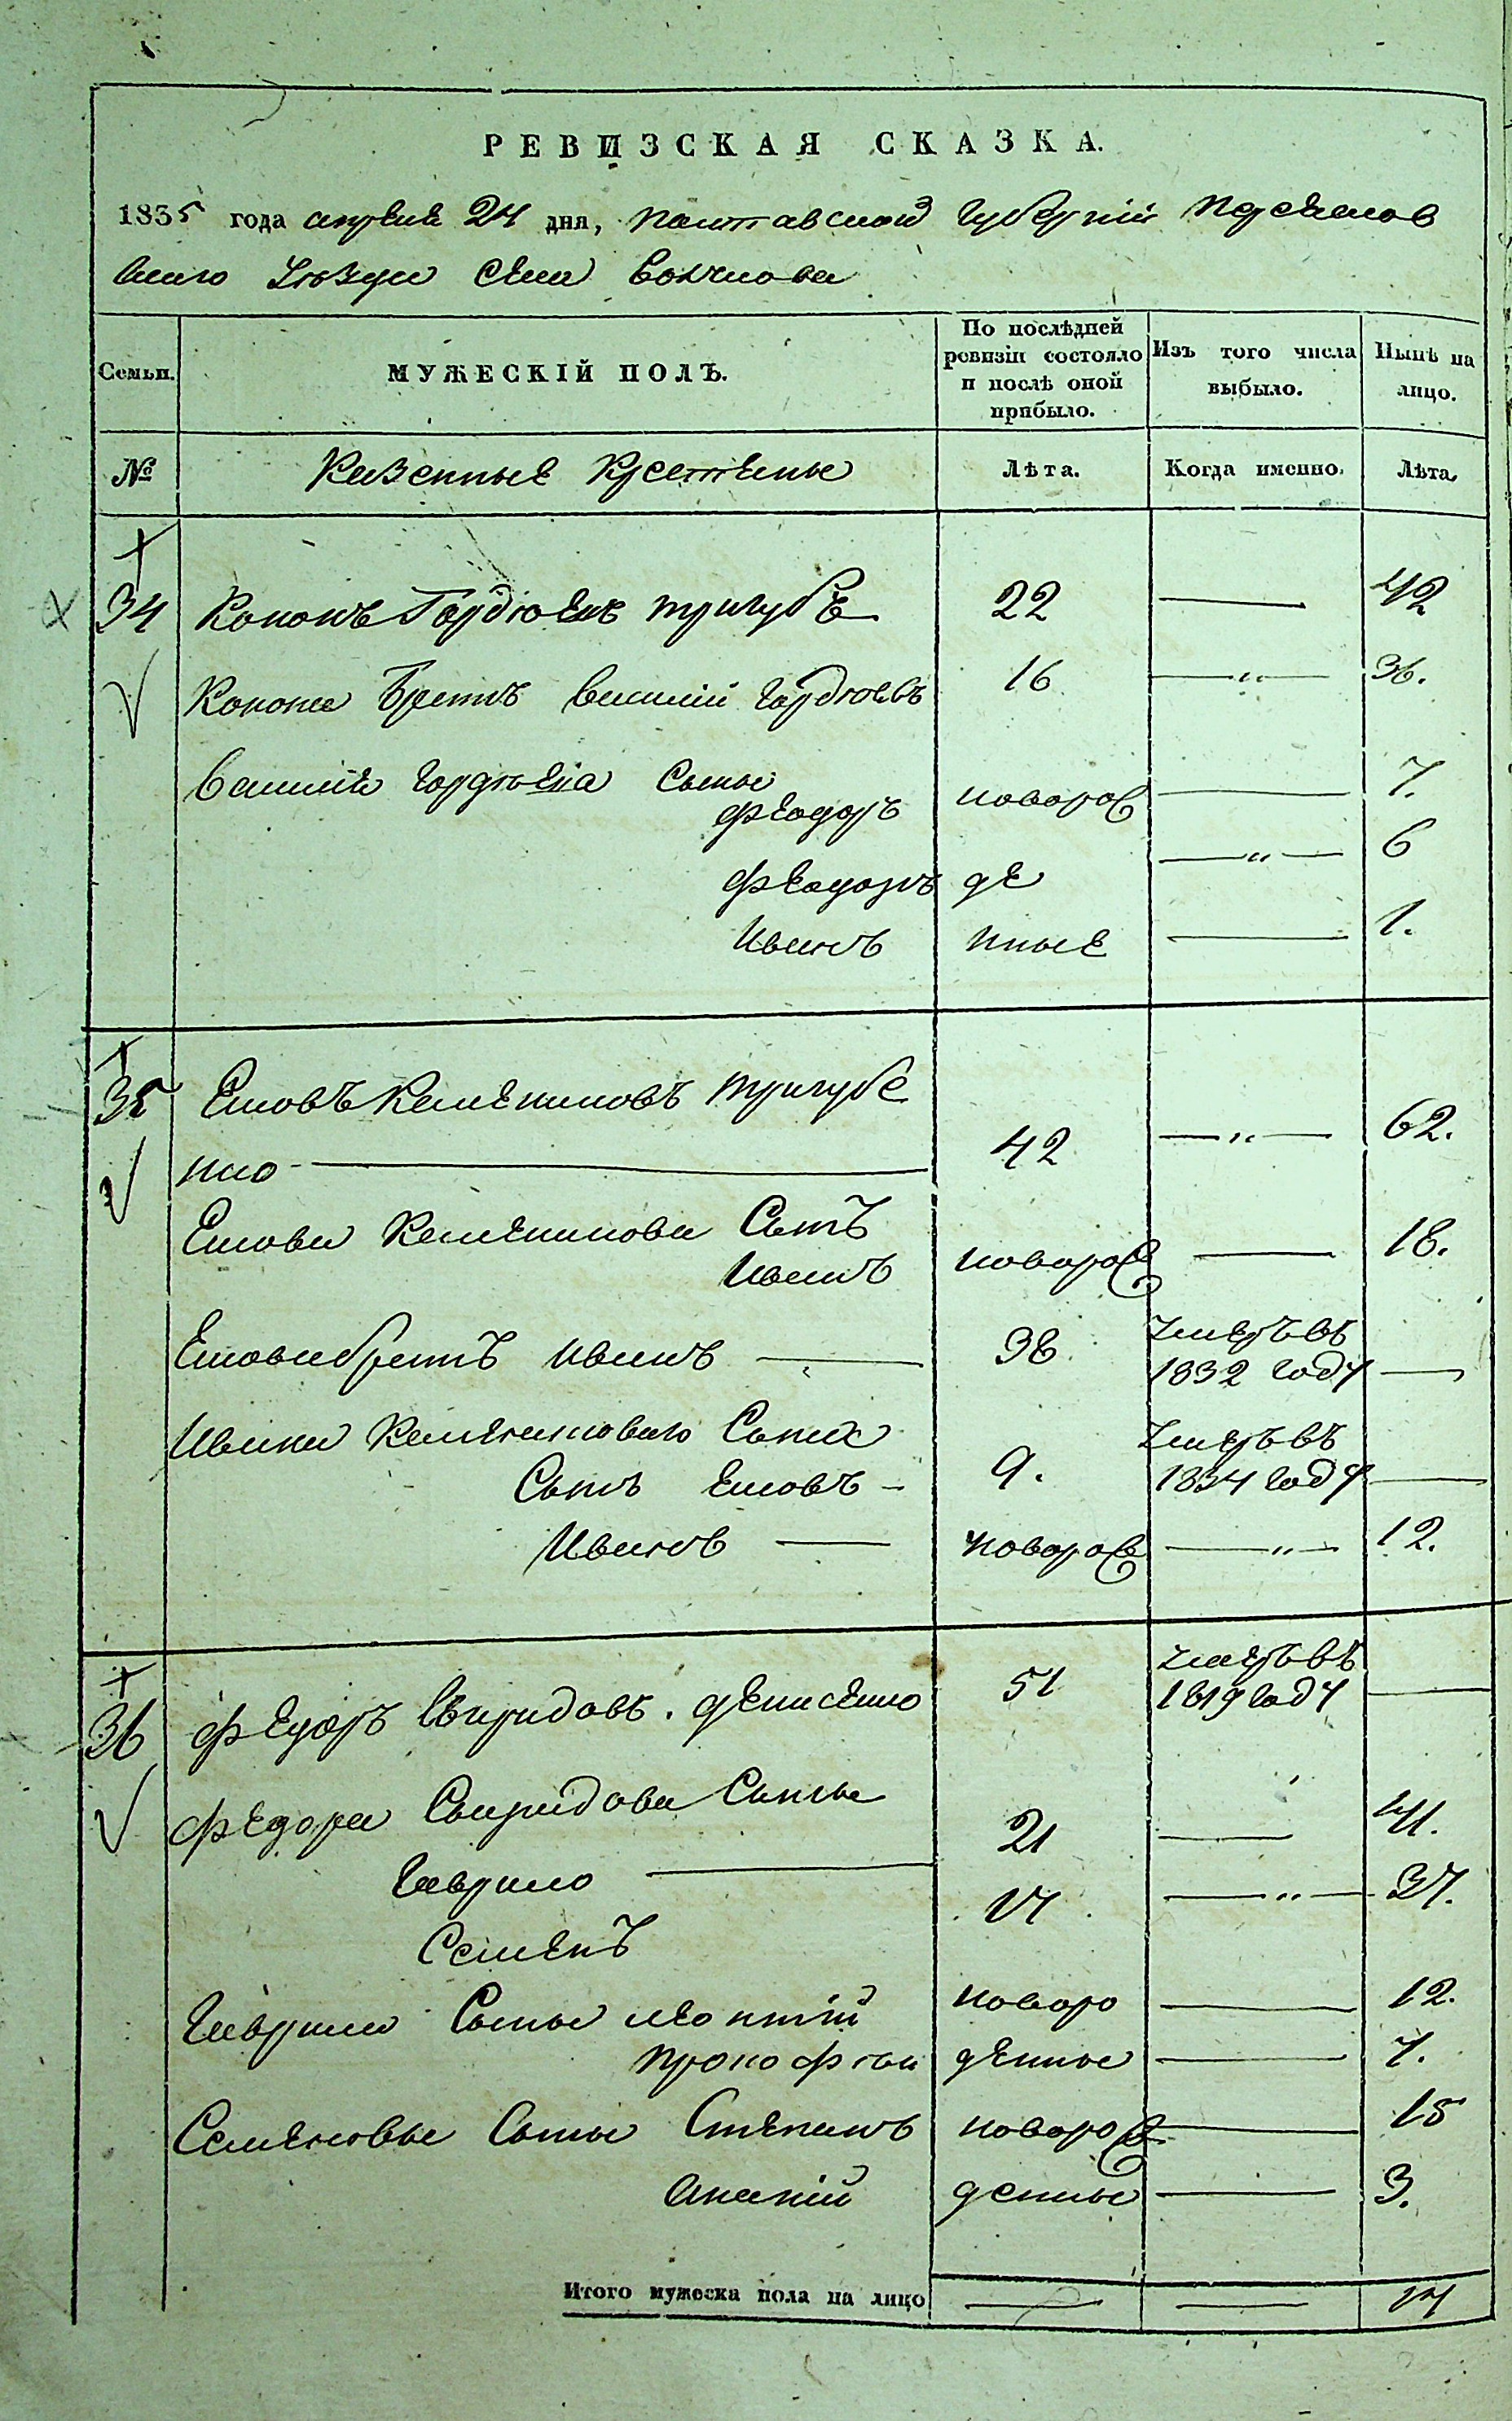 РЕВИЗСКАЯ СКАЗКА.
1835 года апреля 24 дня, Полтавской губерніи Переяслов
скаго уѣзда села Вовчкова
Семьи. МУЖЕСКІЙ ПОЛЪ. По послѣдней ревизіи состояло и послѣ оной прибыло. Изъ того числа выбыло. Нынѣ на лицо.
№ Казенные крестяне Лѣта. Когда именно. Лѣта.
34 Кононъ Гордѣевъ Тригубъ 22 — 42
Конона братъ Василій Гордѣевъ 16 — " — 36.
Василія Гордѣева сыны
Феодоръ новорож — 7.
Феодоръ де — " — 6
Иванъ нные — 1.
35 Яковъ Калениковъ Тригубе
нко — 42 — " — 62.
Якова Каленикова сынъ
Иванъ новорож — 18.
Якова братъ Иванъ — 38 умеръ въ
1832 году —
Ивана Калениковаго сына
сынъ Яковъ — 9. умеръ въ
1834 году —
Иванъ — новорож — " — 12.
36 Федоръ Свиридовъ Денисенко 51 умеръ въ
1819 году —
Федора Свиридова сыны
Гаврило — 21 — 41.
Семенъ 17 — " — 37.
Гаврила сыны Леонтій новоро — 12.
Прокофій денные — 7.
Семеновы сыны Степанъ новорож — 15
Ананій денные — 3.
Итого мужеска пола на лицо — — 14